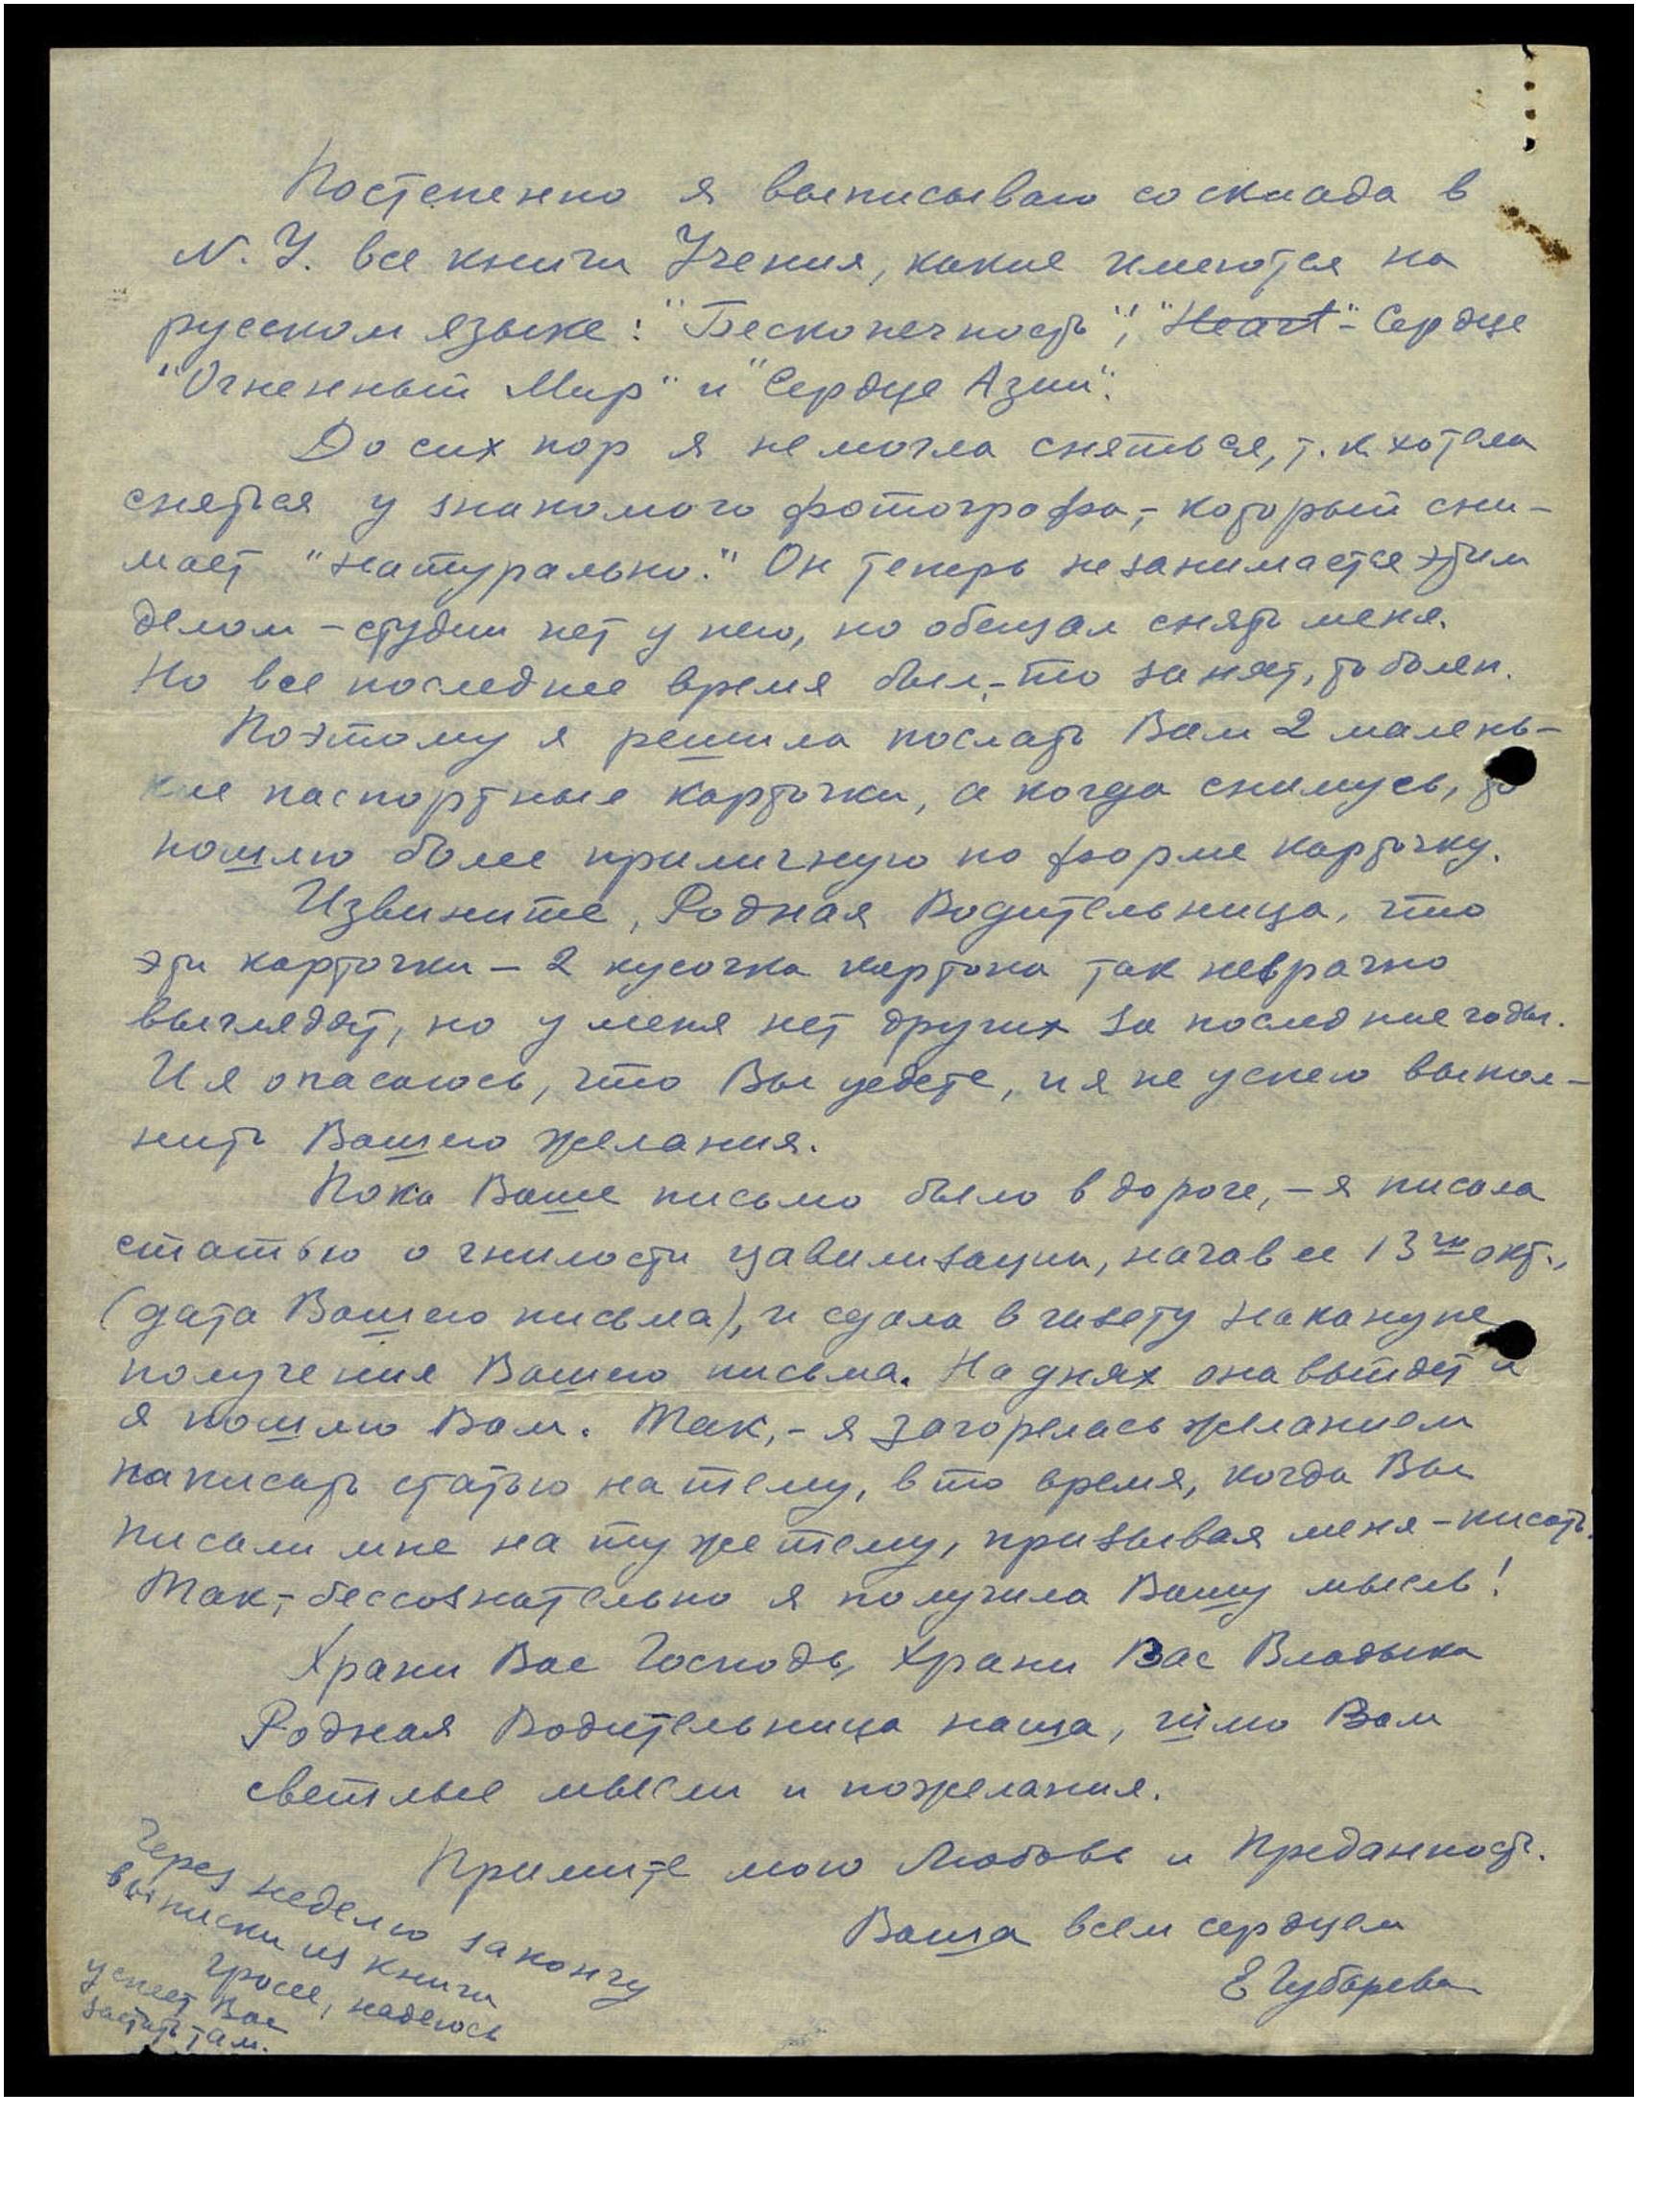 Постепенно я выписываю со склада в
N. Y. все книги Учения, какие имеются на
русском языке: "Бесконечность", "Heart" - Сердце
"Огненный Мир" и "Сердце Азии".
До сих пор я не могла сняться, т. к. хотела
сняться у знакомого фотографа, - который сни-
мает "натурально." Он теперь не занимается этим
делом - студии нет у него, но обещал снять меня.
Но все последнее время был, - то занят, то болен.
Поэтому я решила послать Вам 2 малень-
кие паспортные карточки, а когда снимусь, то
пошлю более приличную по форме карточку.
Извините, Родная Водительница, что
эти карточки - 2 кусочка картона так неврачно
выглядят, но у меня нет других за последние годы.
И я опасаюсь, что Вы уедете, и я не успею выпол-
нить Вашего желания.
Пока Ваше письмо было в дороге, - я писала
статью о гнилости цавилизации, начав ее 13го окт.,
(дата Вашего письма), и сдала в газету накануне
получения Вашего письма. На днях она выйдет и
я пошлю Вам. Так, - я загорелась желанием
написать статью на тему, в то время, когда Вы
писали мне на ту же тему, призывая меня - писать.
Так, - бессознательно я получила Вашу мысль!
Храни Вас Господь, Храни Вас Владыка
Родная Водительница наша, шлю Вам
светлые мысли и пожелания.
Примите мою Любовь и Преданность.
Ваша всем сердцем
Е Губарева
Через неделю закончу
выписки из книги
Гроссе, надеюсь
успеет Вас
застать там.